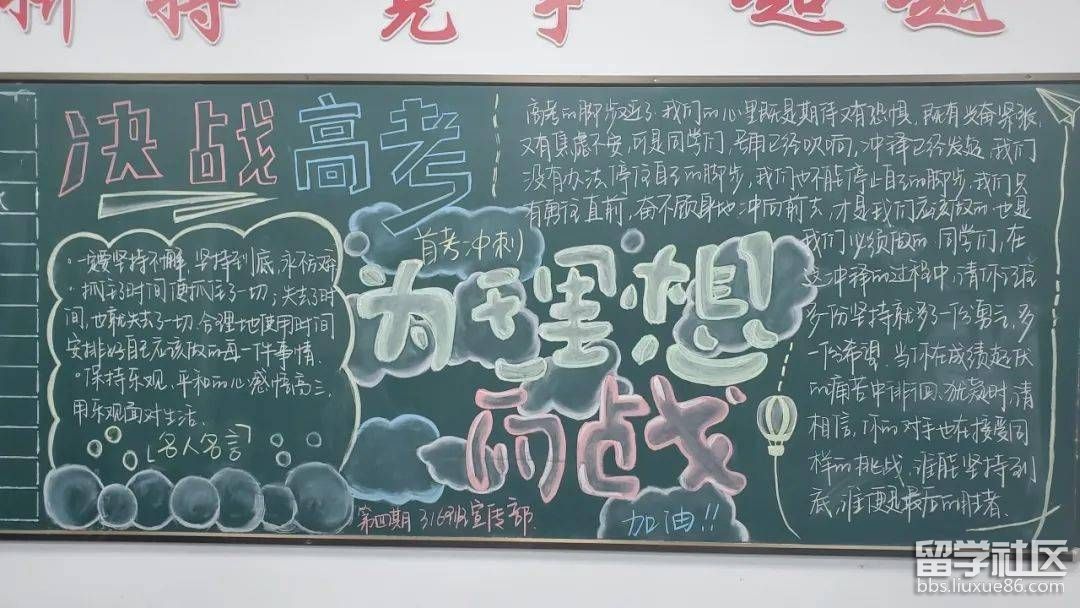 竞争 超越
决战高考
首考冲刺
为理想
而战
加油!!
第四期 316班宣传部
·一定要坚持不懈,坚持到底,永不放弃
·抓住了时间便抓住了一切;失去了时
间,也就失去了一切.合理地使用时间
安排好自己应该做的每一件事情.
·保持乐观、平和的心感悟高三,
用乐观面对生活.
「名人名言」
高考的脚步近了.我们的心里既是期待又有恐惧,既有兴奋紧张,
又有焦虑不安,可是同学们,号角已经吹响,冲锋已经发起,我们
没有办法停住自己的脚步,我们也不能停止自己的脚步,我们只
有勇往直前,奋不顾身地冲向前去,才是我们应该做的.也是
我们必须做的.同学们,在
这冲锋的过程中,请你记住
多一份坚持就多了一份勇气,多
一份希望.当你在成绩起伏
的痛苦中排徊、犹疑时,请
相信,你的对手也在接受同
样的挑战,谁能坚持到
底,谁便是最后的胜者.
留学社区
bbs.liuxue86.com